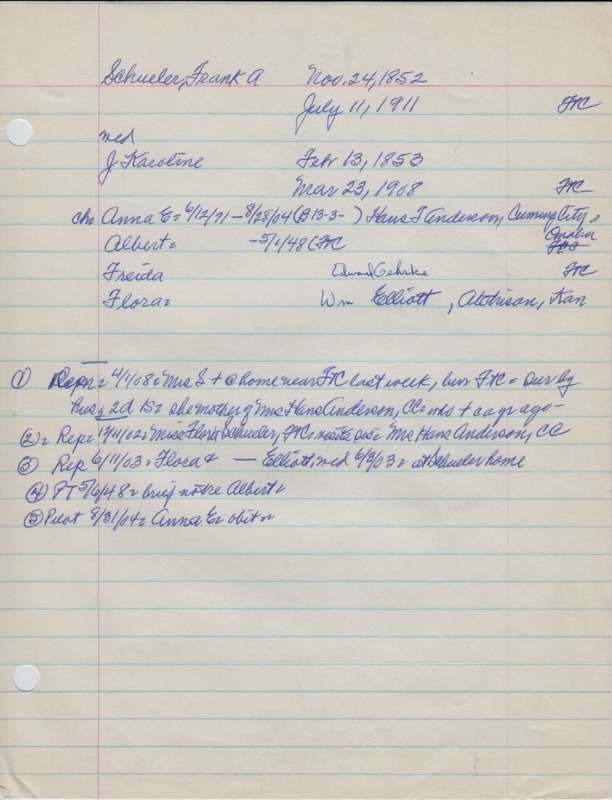 Schueler, Frank A Nov. 24, 1852
July 11, 1911 FTC
med
J Karoline Feb 13, 1853
Mar 23, 1908 FTC
chr Anna E= 6/12/71 – 8/28/04 (B13-3- ) Hans J Anderson, Cuming City =
Albert= -5/1/48 (FTC Omaha
Freida Edward Gehrke FTC
Flora= Wm Elliott, Atchison, Kan
① 4/1/08= Mrs S + @ home near FTC last week, bur FTC= Sur by
hus, 2d 1s= she mother of Mrs Hans Anderson, CC= who + ca yr ago-
②= Rep= 12/11/02= Miss Flora Schueler, FTC= sis= Mrs Hans Anderson, CC
③ Rep 6/11/03= Flora & — Elliott, med 6/3/03= at Schueler home
④ PT 5/6/48= brief not re Albert=
⑤ Pilot 8/31/04= Anna E= obit=